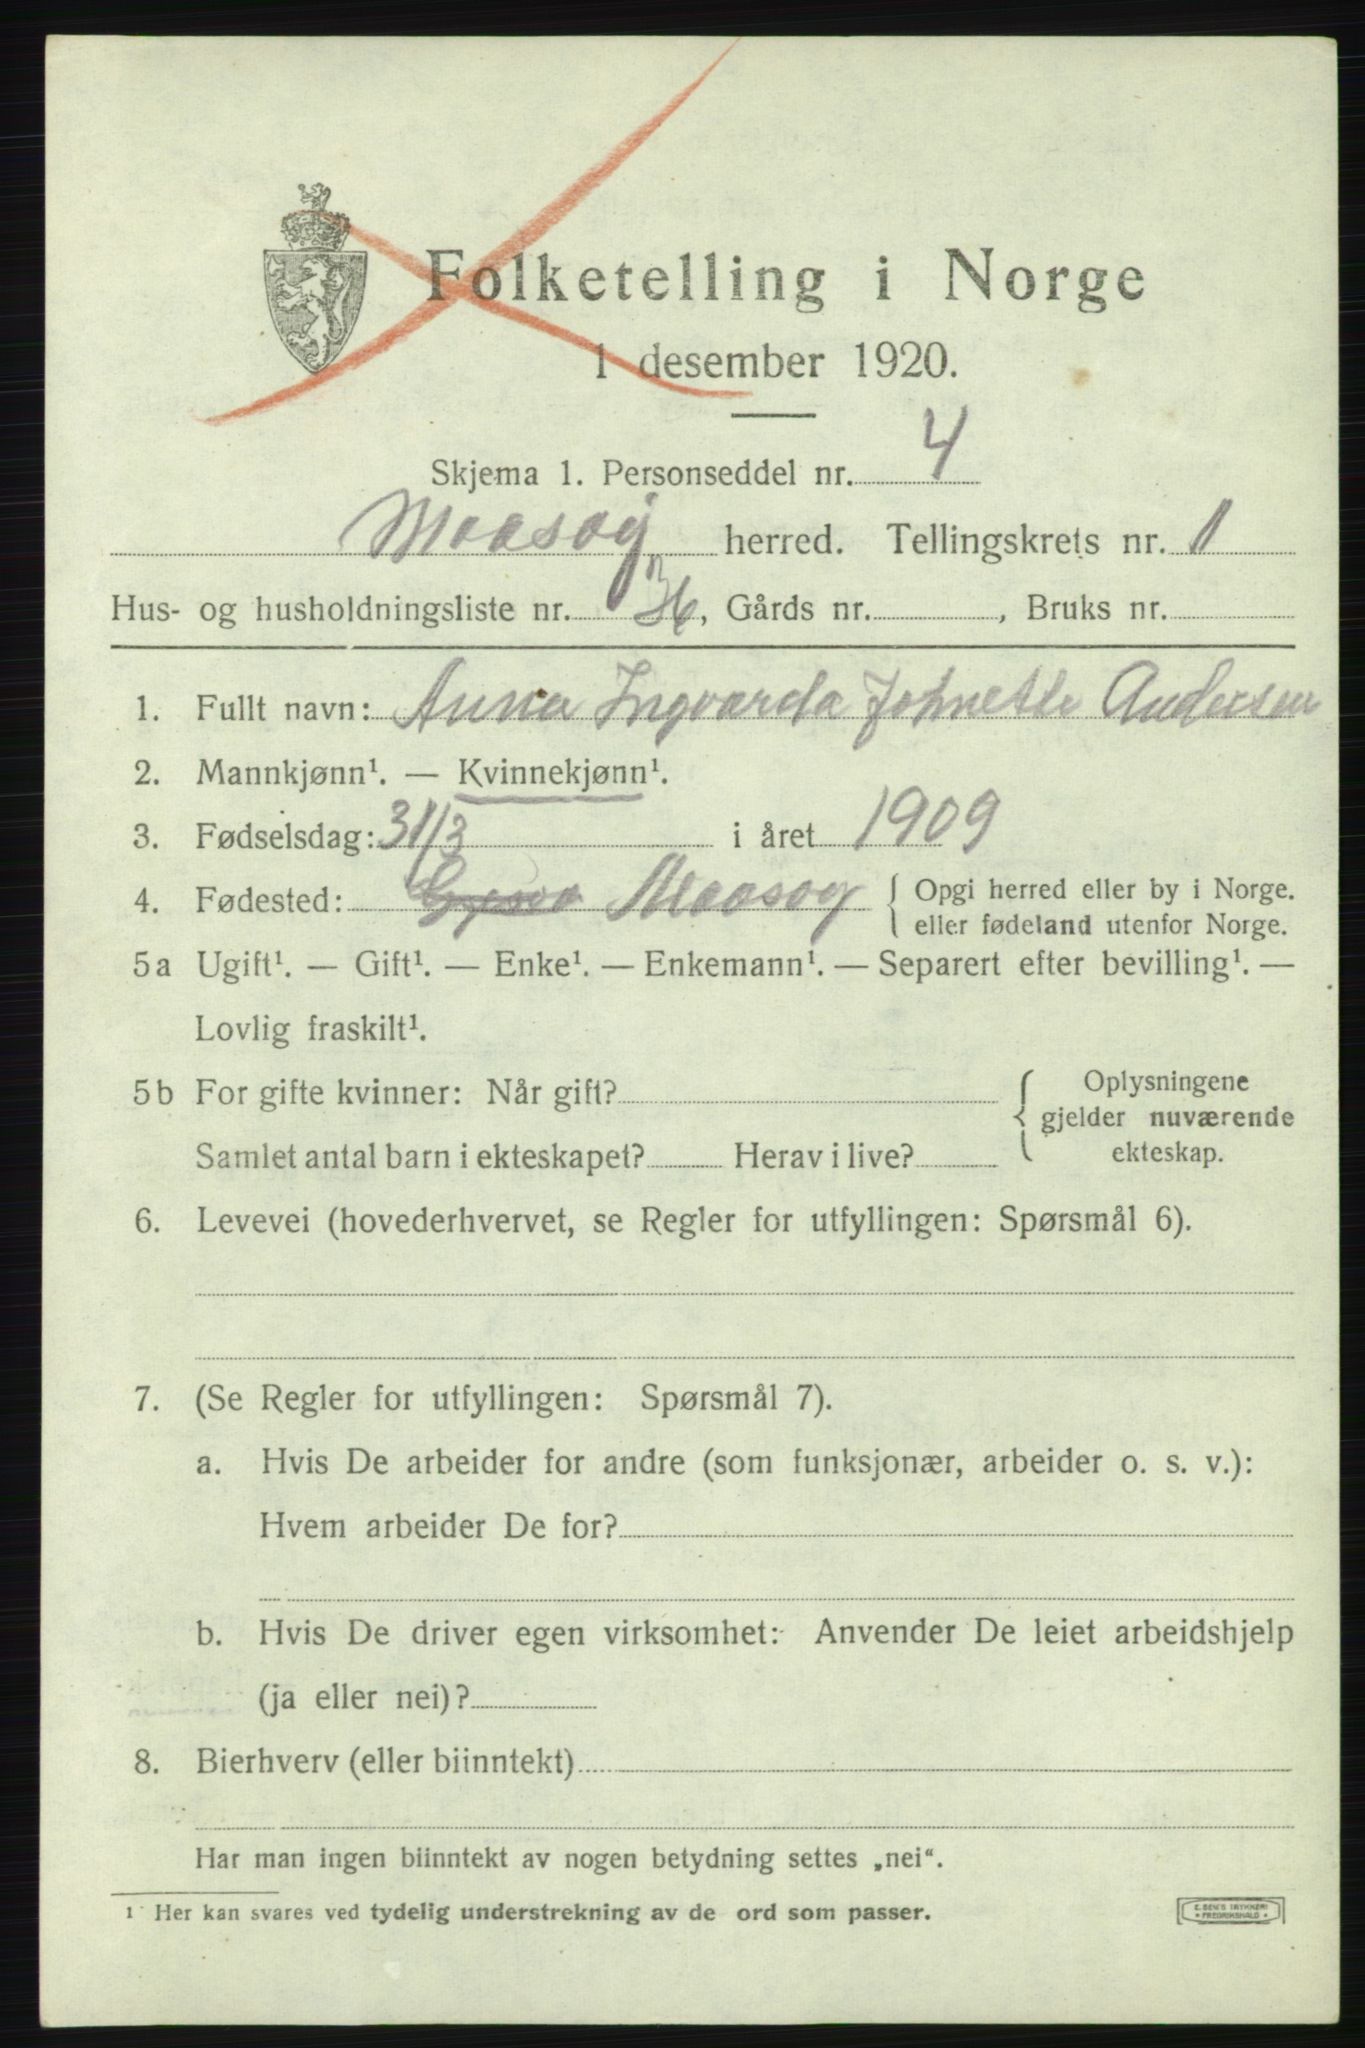 Folketelling i Norge
1 desember 1920.
Skjema 1. Personseddel nr. 4
Maasøy herred. Tellingskrets nr. 1
Hus- og husholdningsliste nr. 36, Gårds nr. , Bruks nr.
1. Fullt navn: Anna Ingvarda Johnette Andersen
2. Mannkjønn¹. — Kvinnekjønn¹.
3. Fødselsdag: 31/3 i året 1909
4. Fødested: Maasøy { Opgi herred eller by i Norge.
eller fødeland utenfor Norge.
5a Ugift¹. — Gift¹. — Enke¹. — Enkemann¹. — Separert efter bevilling¹. —
Lovlig fraskilt¹.
5b For gifte kvinner: Når gift? { Oplysningene
gjelder nuværende
Samlet antal barn i ekteskapet? Herav i live? ekteskap.
6. Levevei (hovederhvervet, se Regler for utfyllingen: Spørsmål 6).
7. (Se Regler for utfyllingen: Spørsmål 7).
a. Hvis De arbeider for andre (som funksjonær, arbeider o. s. v.):
Hvem arbeider De for?
b. Hvis De driver egen virksomhet: Anvender De leiet arbeidshjelp
(ja eller nei)?
8. Bierhverv (eller biinntekt)
Har man ingen biinntekt av nogen betydning settes „nei“.
¹ Her kan svares ved tydelig understrekning av de ord som passer.
E. SEM'S TRYKKERI
FREDRIKSHALD